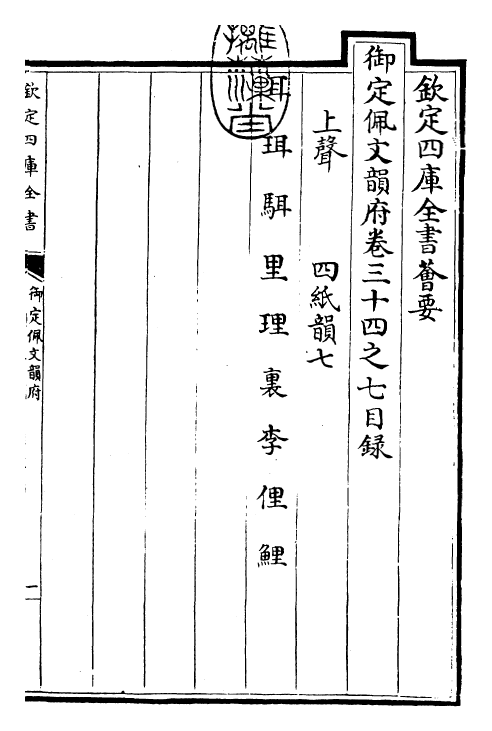 欽定四庫全書薈要
御定佩文韻府卷三十四之七目録
上聲 四紙韻七
珥 珥 駬 里 理 裏 李 俚 鯉
欽定四庫全書
御定佩文韻府
一